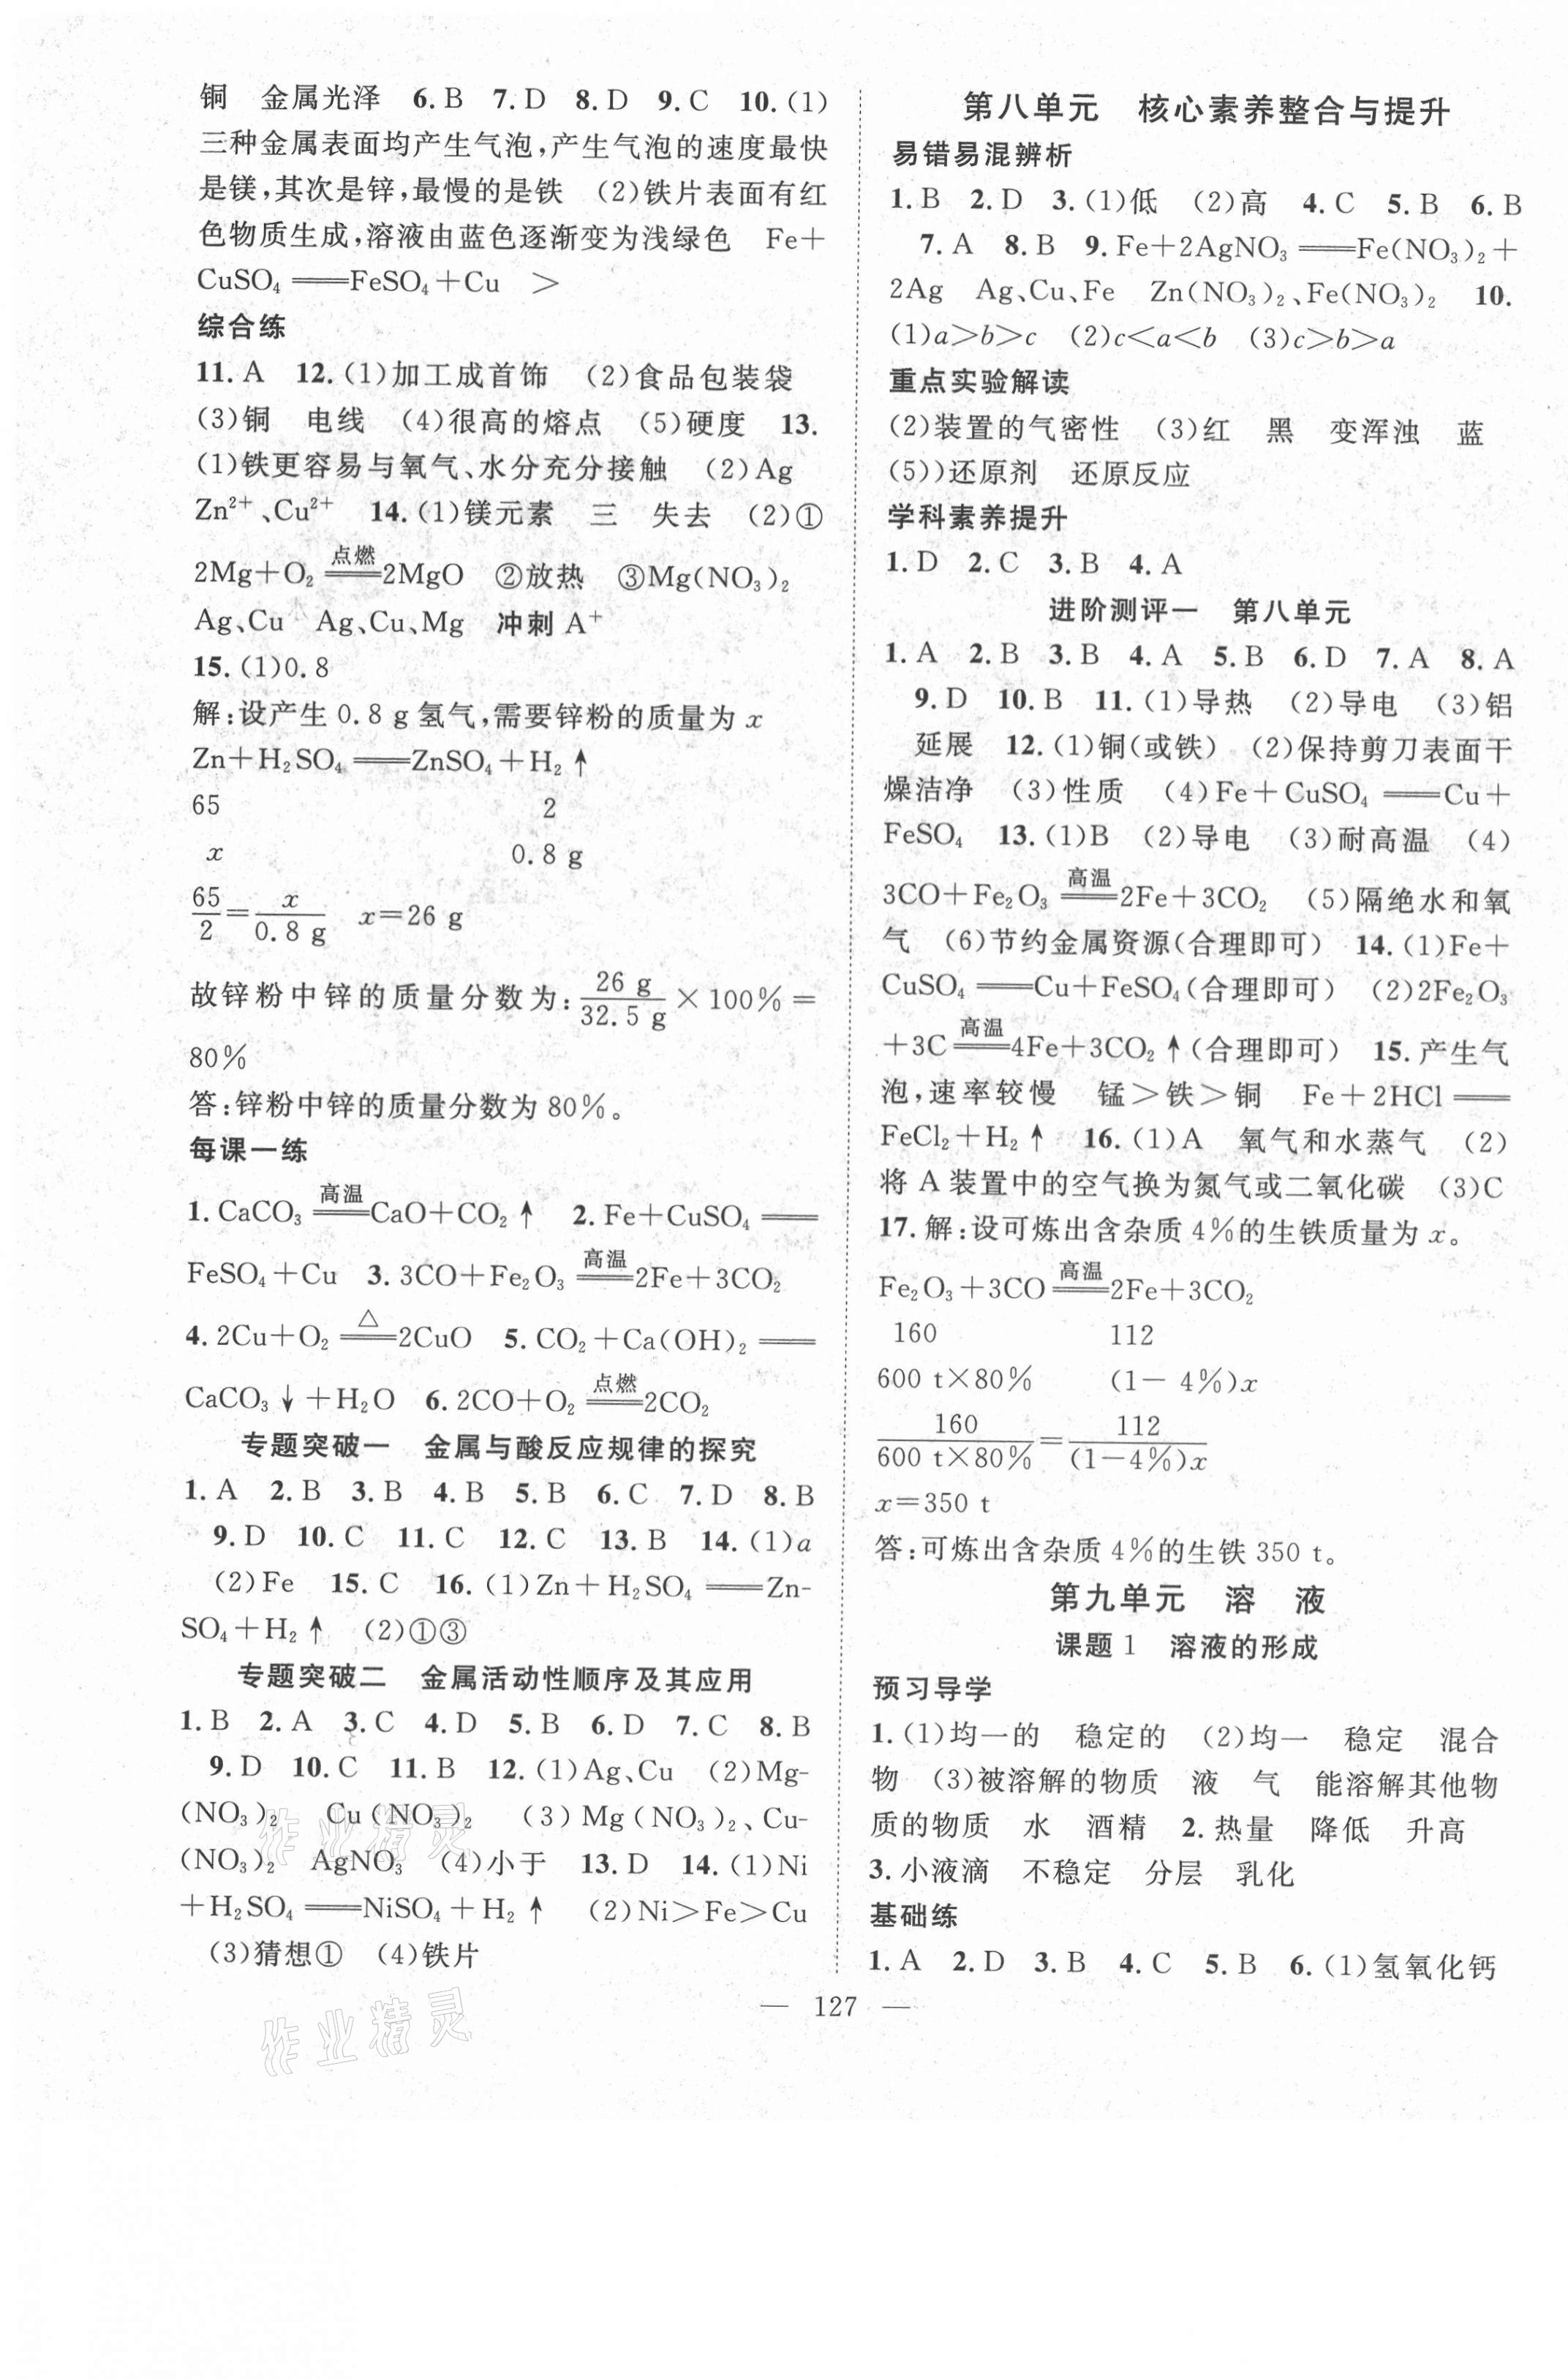 铜　金属光泽　6.B　7.D　8.D　9.C　10.(1)
三种金属表面均产生气泡,产生气泡的速度最快
是镁,其次是锌,最慢的是铁　(2)铁片表面有红
色物质生成,溶液由蓝色逐渐变为浅绿色　Fe+
CuSO₄══FeSO₄+Cu　>
综合练
11.A　12.(1)加工成首饰　(2)食品包装袋
(3)铜　电线　(4)很高的熔点　(5)硬度　13.
(1)铁更容易与氧气、水分充分接触　(2)Ag
Zn²⁺、Cu²⁺　14.(1)镁元素　三　失去　(2)①
2Mg+O₂ ══点燃 2MgO　②放热　③Mg(NO₃)₂
Ag、Cu　Ag、Cu、Mg　冲刺 A⁺
15.(1)0.8
解:设产生 0.8 g 氢气,需要锌粉的质量为 x
Zn+H₂SO₄══ZnSO₄+H₂↑
65　2
x　0.8 g
65/2=x/0.8 g　x=26 g
故锌粉中锌的质量分数为:26 g/32.5 g×100%=
80%
答:锌粉中锌的质量分数为 80%。
每课一练
1.CaCO₃ ══高温 CaO+CO₂↑　2.Fe+CuSO₄══
FeSO₄+Cu　3.3CO+Fe₂O₃ ══高温 2Fe+3CO₂
4.2Cu+O₂ ══△ 2CuO　5.CO₂+Ca(OH)₂══
CaCO₃↓+H₂O　6.2CO+O₂ ══点燃 2CO₂
专题突破一　金属与酸反应规律的探究
1.A　2.B　3.B　4.B　5.B　6.C　7.D　8.B
9.D　10.C　11.C　12.C　13.B　14.(1)a
(2)Fe　15.C　16.(1)Zn+H₂SO₄══Zn-
SO₄+H₂↑　(2)①③
专题突破二　金属活动性顺序及其应用
1.B　2.A　3.C　4.D　5.B　6.D　7.C　8.B
9.D　10.C　11.B　12.(1)Ag、Cu　(2)Mg-
(NO₃)₂　Cu(NO₃)₂　(3)Mg(NO₃)₂、Cu-
(NO₃)₂　AgNO₃　(4)小于　13.D　14.(1)Ni
+H₂SO₄══NiSO₄+H₂↑　(2)Ni>Fe>Cu
(3)猜想①　(4)铁片
第八单元　核心素养整合与提升
易错易混辨析
1.B　2.D　3.(1)低　(2)高　4.C　5.B　6.B
7.A　8.B　9.Fe+2AgNO₃══Fe(NO₃)₂+
2Ag　Ag、Cu、Fe　Zn(NO₃)₂、Fe(NO₃)₂　10.
(1)a>b>c　(2)c<a<b　(3)c>b>a
重点实验解读
(2)装置的气密性　(3)红　黑　变浑浊　蓝
(5))还原剂　还原反应
学科素养提升
1.D　2.C　3.B　4.A
进阶测评一　第八单元
1.A　2.B　3.B　4.A　5.B　6.D　7.A　8.A
9.D　10.B　11.(1)导热　(2)导电　(3)铝
延展　12.(1)铜(或铁)　(2)保持剪刀表面干
燥洁净　(3)性质　(4)Fe+CuSO₄══Cu+
FeSO₄　13.(1)B　(2)导电　(3)耐高温　(4)
3CO+Fe₂O₃ ══高温 2Fe+3CO₂　(5)隔绝水和氧
气　(6)节约金属资源(合理即可)　14.(1)Fe+
CuSO₄══Cu+FeSO₄(合理即可)　(2)2Fe₂O₃
+3C ══高温 4Fe+3CO₂↑(合理即可)　15.产生气
泡,速率较慢　锰>铁>铜　Fe+2HCl══
FeCl₂+H₂↑　16.(1)A　氧气和水蒸气　(2)
将 A 装置中的空气换为氮气或二氧化碳　(3)C
17.解:设可炼出含杂质 4%的生铁质量为 x。
Fe₂O₃+3CO ══高温 2Fe+3CO₂
160　112
600 t×80%　(1- 4%)x
160/600 t×80%=112/(1-4%)x
x=350 t
答:可炼出含杂质 4%的生铁 350 t。
第九单元　溶　液
课题 1　溶液的形成
预习导学
1.(1)均一的　稳定的　(2)均一　稳定　混合
物　(3)被溶解的物质　液　气　能溶解其他物
质的物质　水　酒精　2.热量　降低　升高
3.小液滴　不稳定　分层　乳化
基础练
1.A　2.D　3.B　4.C　5.B　6.(1)氢氧化钙
— 127 —
作业精灵
作业精灵